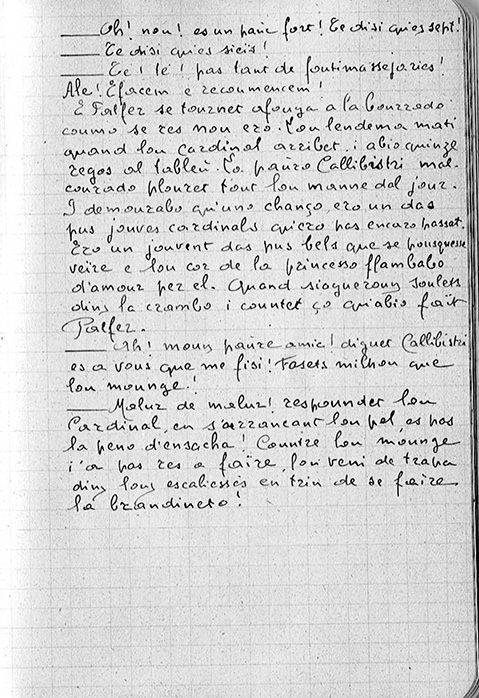 ____ Oh! nou! es un pauc fort! Te disi qu'es sept!
____ Te disi qu'es sieis!
____ Te! te! pas tant de foutimassejaries!
Ale! Efacem e recoumencem!
E Palfer se tournet afouga a la bourrado
coumo se res nou ero. Lou lendema mati
quand lou cardinal arribet, i abio quinze
regos al tableu. La pauro Callibistri mal-
courado plouret tout lou manne dal jour.
I demourabo qu'uno chanço, ero un das
pus jouves cardinals qu'ero pas encaro passat.
Ero un jouvent das pus bels que se pousquesse
veire e lou cor de la princesso flambabo
d'amour per el. Quand siogueroun soulets
dins la crambo i countet ço qu'abio fait
Palfer.
____ Ah! moun paure amic! diguet Callibistri
es a vous que me fisi! Fasets milhou que
lou mounge!
____ Malur de malur! respoundet lou
Cardinal, en s'arrancant lou pel, es pas
la peno d'ensacha! Countre lou mounge
i'a pas res a faire, lou veni de trapa
dins lous escaliessés en trin de se faire
la brandineto!